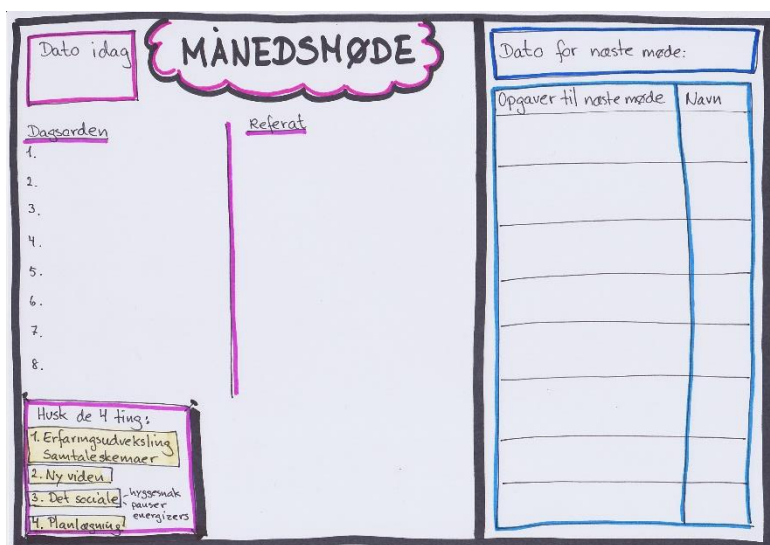 Dato idag
MÅNEDSMØDE
Dagsorden
1.
2.
3.
4.
5.
6.
7.
8.
Referat
Husk de 4 ting:
1. Erfaringsudveksling
Samtaleskemaer
2. Ny viden
3. Det sociale - hyggesnak
pauser
energizers
4. Planlægning
Dato for næste møde:
Opgaver til næste møde
Navn